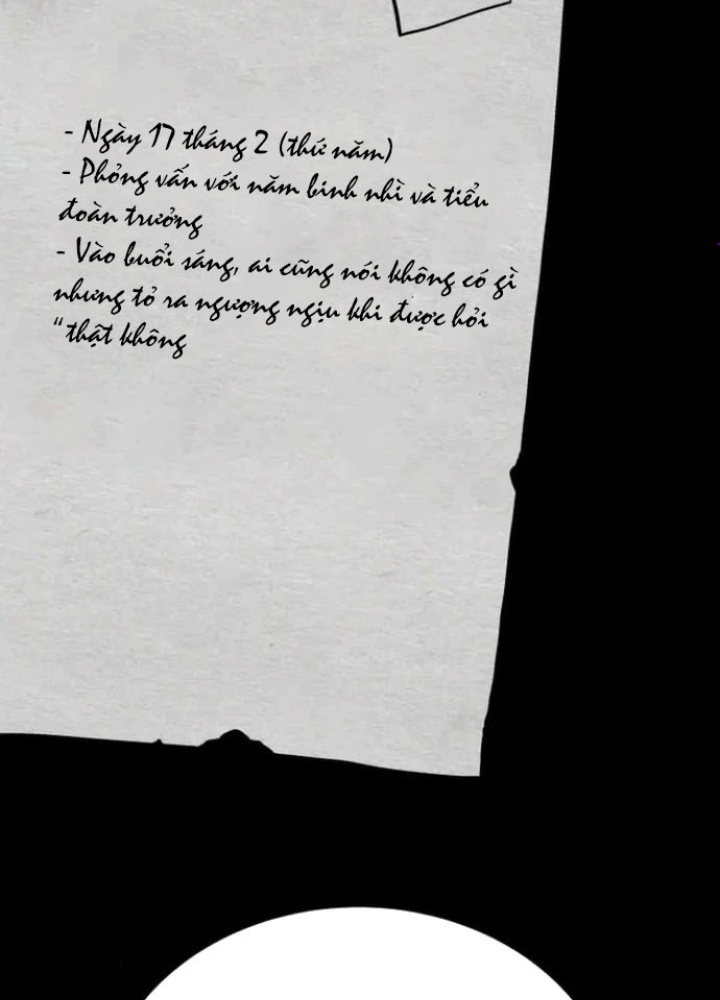 - Ngày 17 tháng 2 (thứ năm)
- Phỏng vấn với năm binh nhì và tiểu
đoàn trưởng
- Vào buổi sáng, ai cũng nói không có gì
nhưng tỏ ra ngượng ngịu khi được hỏi
"thật không